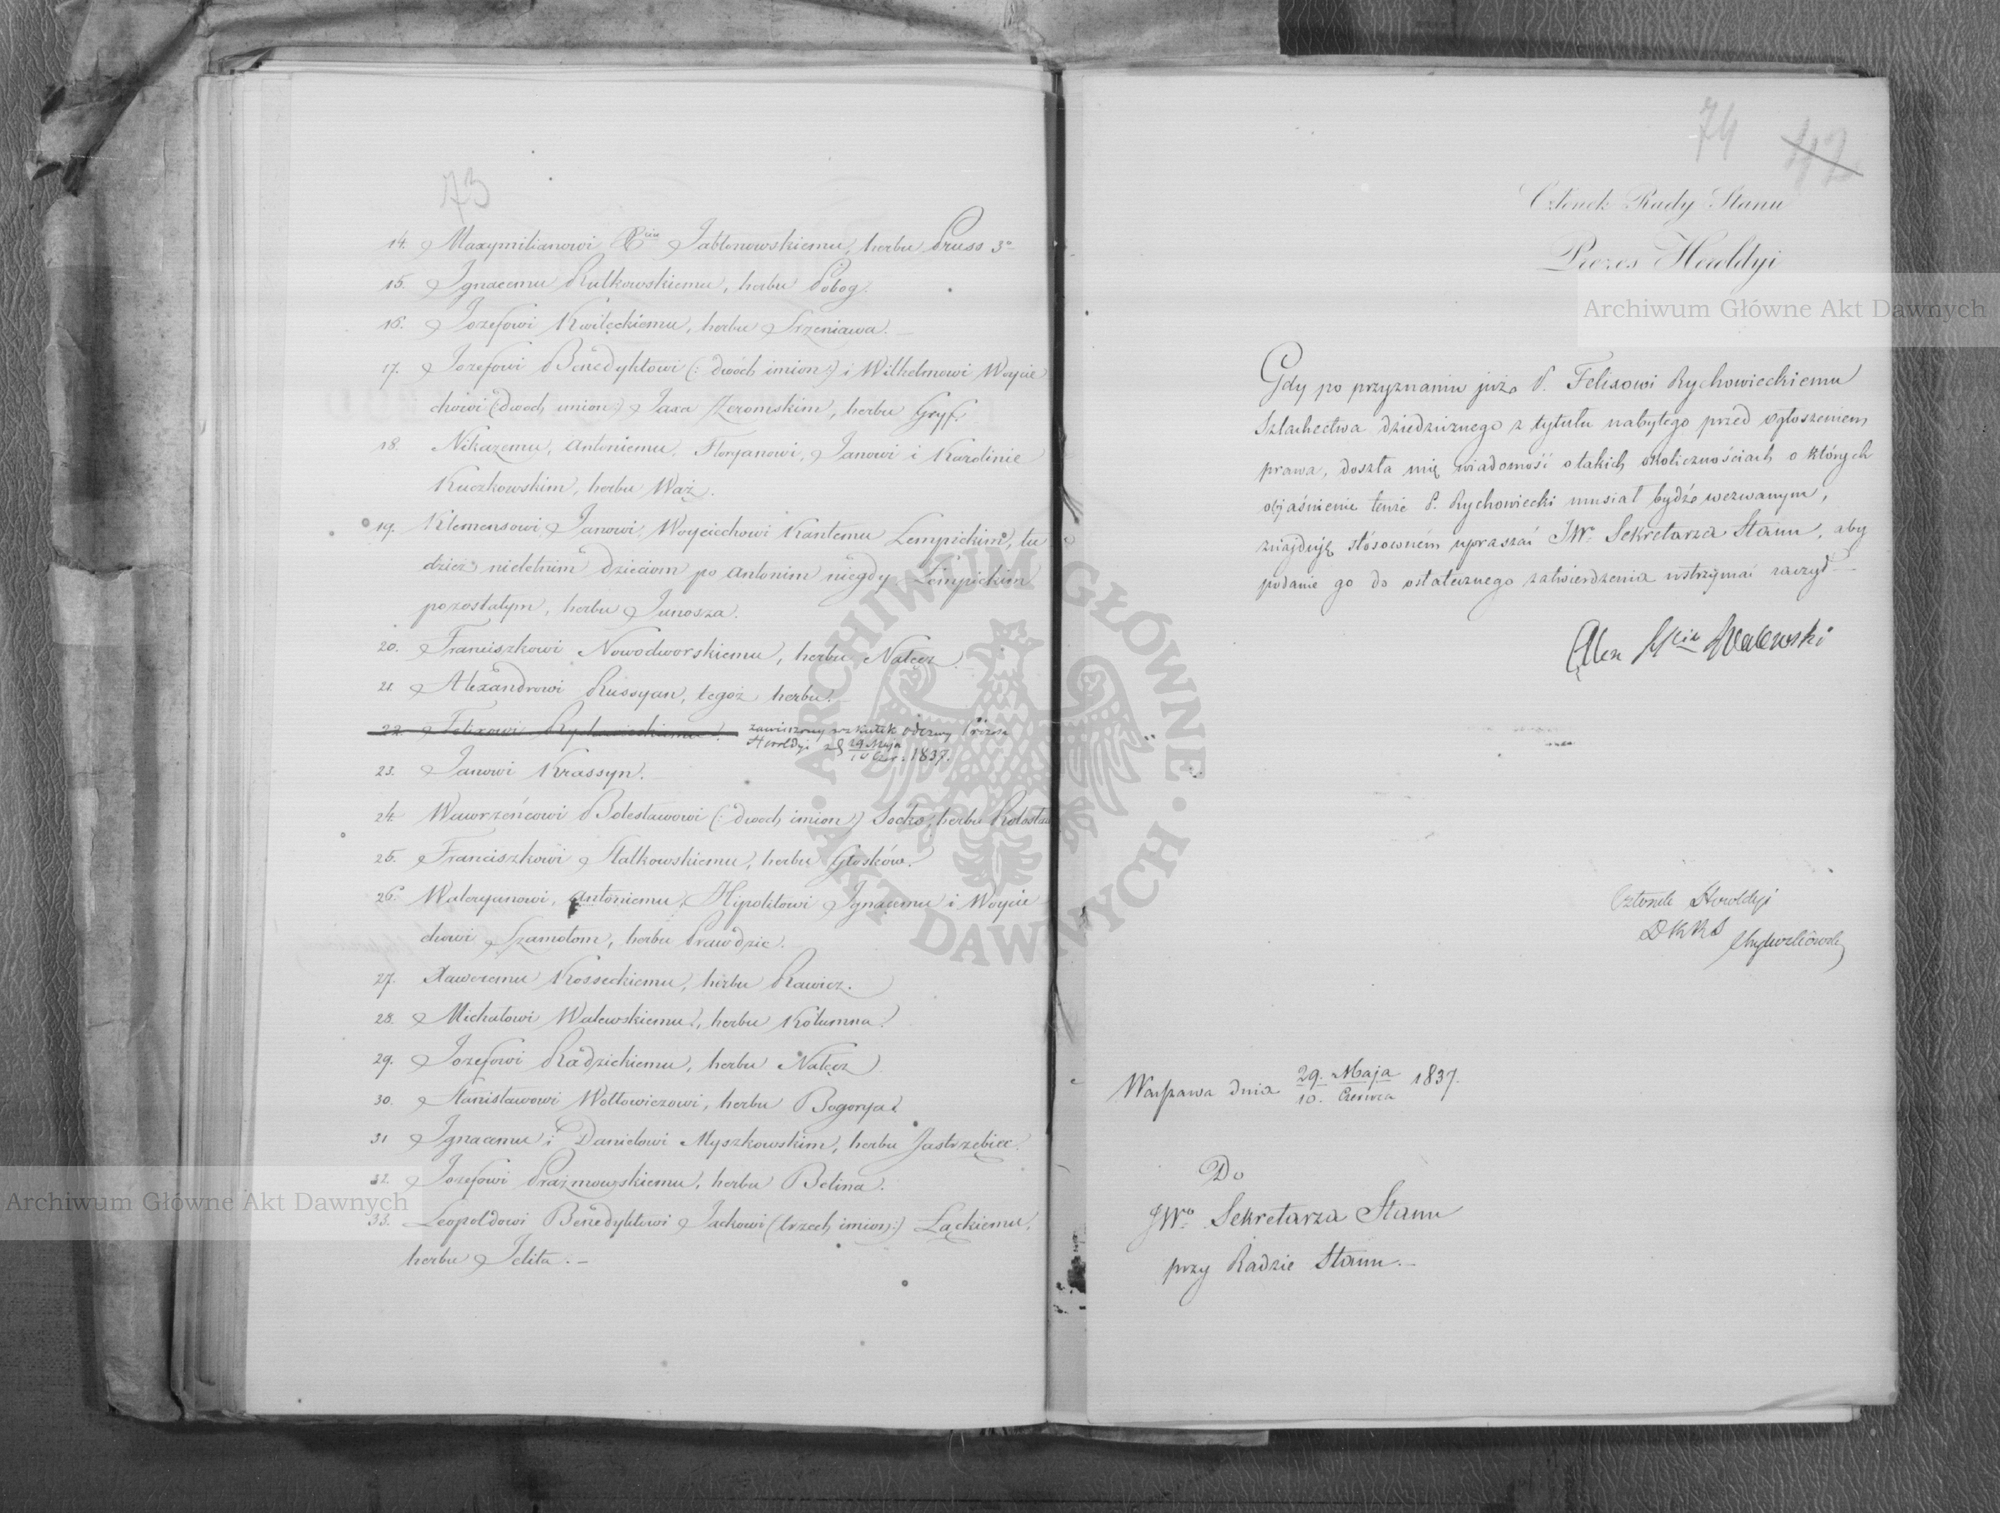 73
14. Maxymilianowi Jabłonowskiemu, herbu Pruss 3º
15. Ignacemu Rutkowskiemu, herbu Pobog.
16. Jozefowi Kwilęckiemu, herbu Szreniawa.
17. Jozefowi Benedyktowi (: dwóch imion :) i Wilhelmowi Woycie
chowi (: dwoch imion :) Jaxa Zeromskim, herbu Gryf.
18. Nikazemu, Antoniemu, Floryanowi, Janowi i Karolinie
Kuczkowskim, herbu Wąż.
19. Klemensowi, Janowi, Woyciechowi Kantemu Lempickim, tu
dzież nieletnim dzieciom po Antonim niegdy Lempickim
pozostałym, herbu Junosza.
20. Franciszkowi Nowodworskiemu, herbu Nałęcz.
21. Alexandrowi Russyan, tegoż herbu.
22. Felixowi Rychowieckiemu. zawieszony w skutek odezwy Prezesa
Heroldyi z d 29 Maja / 10 Czer. 1837.
23. Janowi Krassyn.
24. Wawrzeńcowi Bolesławowi (: dwoch imion :) Socko, herbu
25. Franciszkowi Stalkowskiemu, herbu Głosków.
26. Waleryanowi, Antoniemu, Hipolitowi Ignacemu i Woycie
chowi Szamotom, herbu Prawdzic.
27. Xaweremu Kosseckiemu, herbu Rawicz.
28. Michałowi Walewskiemu, herbu Kolumna.
29. Jozefowi Radzickiemu, herbu Nałęcz
30. Stanisławowi Wołłowiczowi, herbu Bogorya.
31 Ignacemu i Danielowi Myszkowskim, herbu Jastrzębiec.
32. Jozefowi Prażmowskiemu, herbu Belina.
33. Leopoldowi Benedyktowi Jackowi (: trzech imion :) Łąckiemu,
herbu Jelita. –
74 42
Członek Rady Stanu
Prezes Heroldyi
Gdy po przyznaniu już P. Felixowi Rychowieckiemu
Szlachectwa dziedzicznego z tytułu nabytego przed ogłoszeniem
prawa, doszła mię wiadomość o takich okolicznościach o których
objaśnienie tenże P. Rychowiecki musiał bydź wezwanym,
znajduję stósownem upraszać JWº Sekretarza Stanu, aby
podanie go do ostatecznego zatwierdzenia wstrzymać raczył –
Alex Walewski
Członek Heroldyi
Warszawa dnia 29. Maja / 10. Czerwca 1837.
Do
JWº Sekretarza Stanu
przy Radzie Stanu. –
Archiwum Główne Akt Dawnych
Archiwum Główne Akt Dawnych
ARCHIWUM GŁÓWNE · AKT DAWNYCH ·